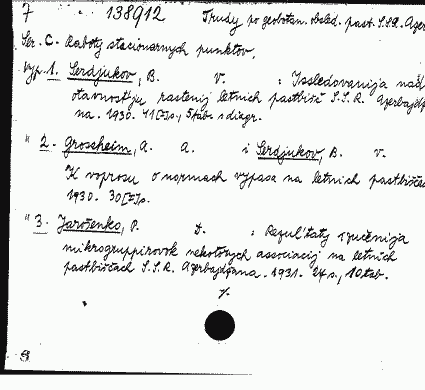 7 138912 Trudy po geobotan. obsled. past. S.S.R. Azer
Ser. C. Raboty stacionarnych punktov.
Vyp. 1. Serdjukov, B. V. : Issledovanija nad
otavnost'ju rastenij letnich pastbišč S.S.R. Azerbajdž
na. 1930. 41 s., 5 tab. s diagr.
" 2. Grossheim, A. A. i Serdjukov, B. V.
K voprosu o normach vypasa na letnich pastbiščac
1930. 30 s.
" 3. Jarošenko, P. D. : Rezul'taty izučenija
mikrogruppirovok nekotorych associacij na letnich
pastbiščach S.S.R. Azerbajdžana. 1931. 24 s., 10 tab.
%